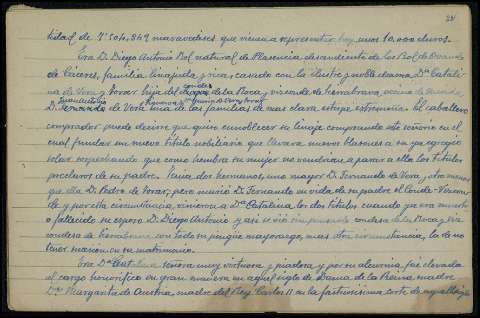 24
tidad de 7.504,869 maravedises que viene a representar hoy unos 10.000 duros.
Era D. Diego Antonio Bol natural de Plasencia, descendiente de los Bol de Ovando
de Cáceres, familia linajuda y rica; casado con la ilustre y noble dama, Dª Catali-
na de Vera y Tovar hija del conde de la Roca, vizconde de Sierrabrava, vecino de Mérida,
D. Fernando de Vera una de las familias de mas clara estirpe extremeña. El caballero
comprador puede decirse que quiso ennoblecer su linaje comprando este señorio en el
cual fundar un nuevo titulo nobiliario que llevara nuevos blasones a su ya egregio
solar sospechando que como hembra su mujer no vendrian a parar a ella los titulos
preclaros de su padre. Tenia dos hermanos, uno mayor D. Fernando de Vera, otro menor
que ella D. Pedro de Tovar; pero murió D. Fernando en vida de su padre el Conde-Vizcon-
de, y por esta circunstancia, vinieron a Dª Catalina los dos titulos cuando ya era muerto
o fallecido su esposo D. Diego Antonio y asi se vió sin pensarlo condesa de la Roca y viz-
condesa de Sierrabrava con todo su pingüe mayorazgo, mas otra circunstancia, la de no
tener sucesion en su matrimonio.
Era Dª Catalina señora muy virtuosa y piadosa y por su alcurnia, fué elevada
al cargo honorifico en gran manera en aquel siglo de Dama de la Reina madre
Dª Margarita de Austria, madre del Rey Carlos II en la fastuosisima corte de aquel